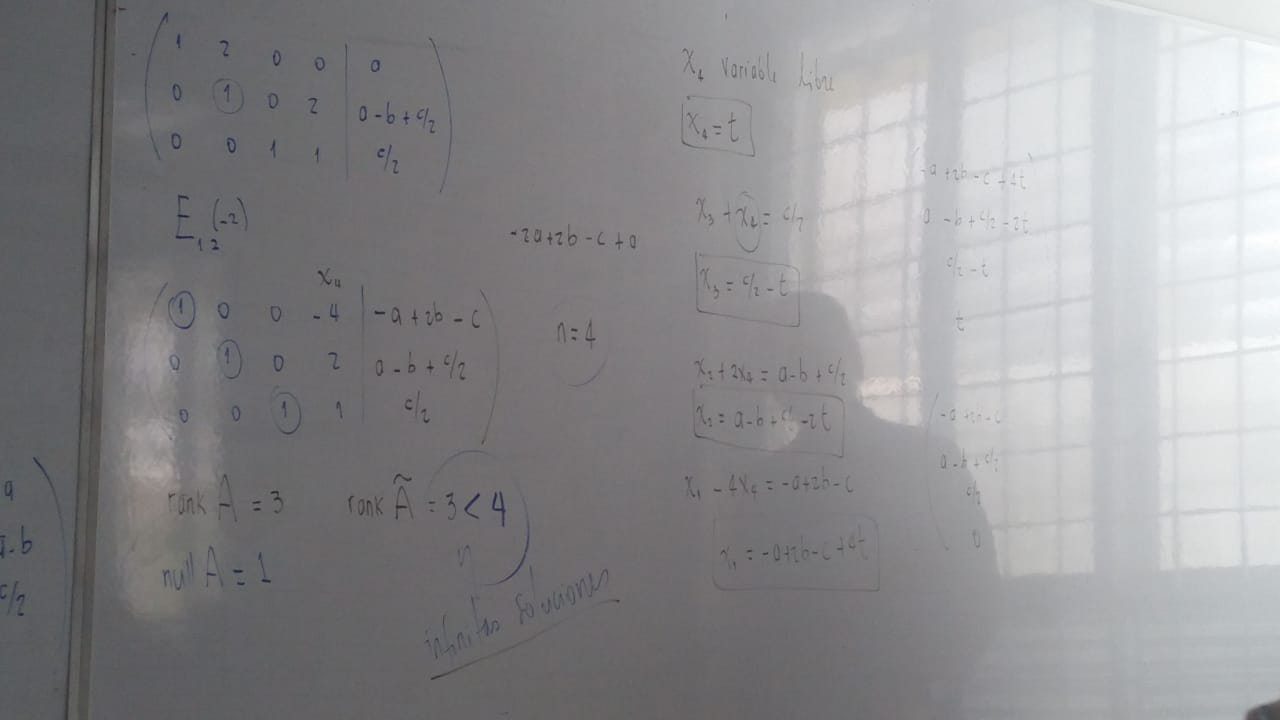 1 2 0 0 | a
0 1 0 2 | a-b+c/2
0 0 1 1 | c/2
E₁₂(-2)
-2a+2b-c+a
x₄
1 0 0 -4 | -a+2b-c
0 1 0 2 | a-b+c/2
0 0 1 1 | c/2
n=4
rank A = 3
rank Ã = 3 < 4
n
null A = 1
infinitas soluciones
a
c/2
x₄ variable libre
x₄ = t
x₃ + x₄ = c/2
x₃ = c/2 - t
x₂ + 2x₄ = a-b+c/2
x₂ = a-b+c/2-2t
x₁ - 4x₄ = -a+2b-c
x₁ = -a+2b-c+4t
-a+2b-c+4t
a-b+c/2-2t
c/2-t
t
-a+2b-c
a-b+c/2
c/2
0